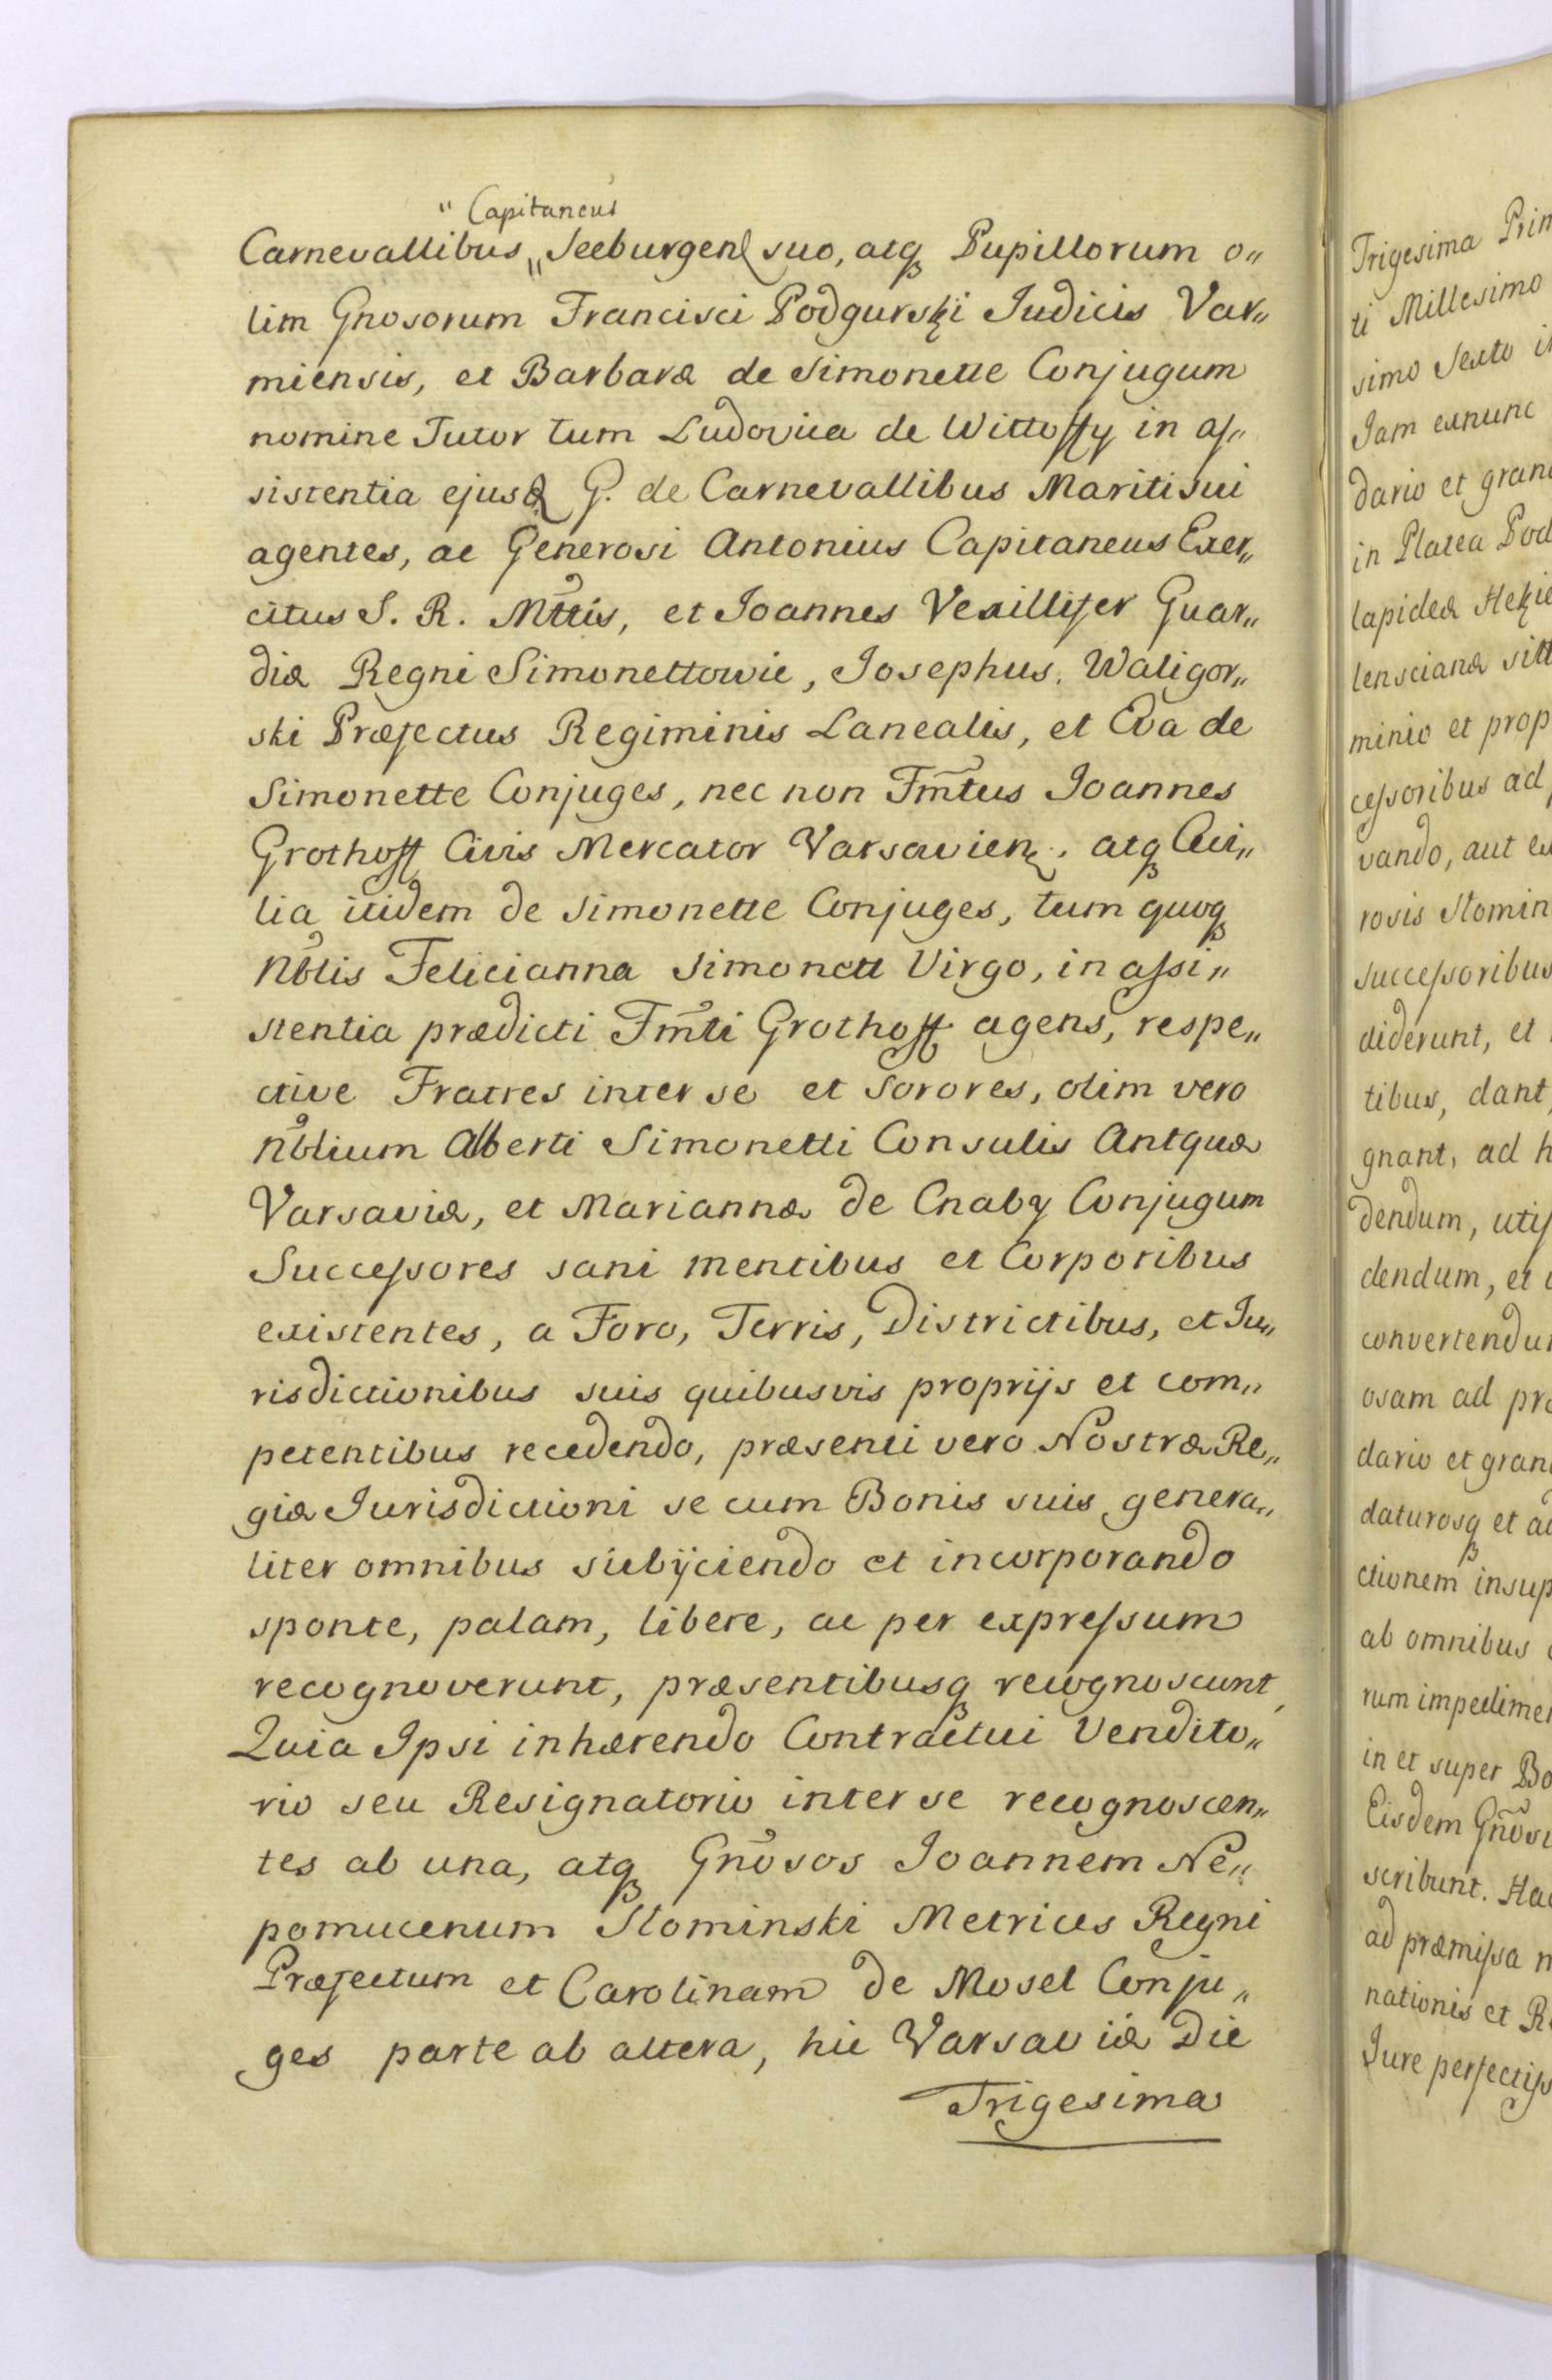 " Capitaneus
Carnevallibus „ Seeburgen suo, atq Pupillorum o„
lim Gnosorum Francisci Podgurski Judicis Var„
miensis, et Barbaræ de Simonette Conjugum
nomine Tutor tum Ludovica de Wittoffy in as„
sistentia ejusd G. de Carnevallibus Mariti sui
agentes, ac Generosi Antonius Capitaneus Exer„
citus S. R. Mttis, et Joannes Vexillifer Guar„
diæ Regni Simonettowie, Josephus Waligor„
ski Præfectus Regiminis Lanealis, et Eva de
Simonette Conjuges, nec non Fm̃tus Joannes
Grothoff Civis Mercator Varsavien. atq Cæci„
lia itidem de Simonette Conjuges, tum quoq
Nblis Felicianna Simonett Virgo, in assi„
stentia prædicti Fm̃ti Grothoff agens, respe„
ctive Fratres inter se et Sorores, olim vero
Nblium Alberti Simonetti Consulis Antquæ
Varsaviæ, et Mariannæ de Cnaby Conjugum
Successores sani mentibus et Corporibus
existentes, a Foro, Terris, Districtibus, et Ju„
risdictionibus suis quibusvis proprijs et com„
petentibus recedendo, præsenti vero Nostræ Re„
giæ Jurisdictioni se cum Bonis suis genera„
liter omnibus subijciendo et incorporando
sponte, palam, libere, ac per expressum
recognoverunt, præsentibusq recognoscunt,
Quia Ipsi inhærendo Contractui Vendito„
rio seu Resignatorio inter se recognoscen„
tes ab una, atq Gnosos Joannem Ne„
pomucenum Slominski Metrices Regni
Præfectum et Carolinam de Mosel Conju„
ges parte ab altera, hic Varsaviæ Die
Trigesima
Trigesima Prim
ti Millesimo
simo Sexto i
Jam exnunc
dario et gran
in Platea Pod
lapideæ
lenscianæ sitt
minio et prop
cessoribus ad
vando, aut ex
rosis Slomin
successoribus
diderunt, et
tibus, dant,
gnant, ad h
dendum, utif
dendum, et
convertendu
osam ad pr
dario et gran
daturosq et a
ctionem insup
ab omnibus
rum impedime
in et super Bo
Eisdem Gnosi
scribunt. Ha
ad præmissa
nationis et R
Jure perfectiss